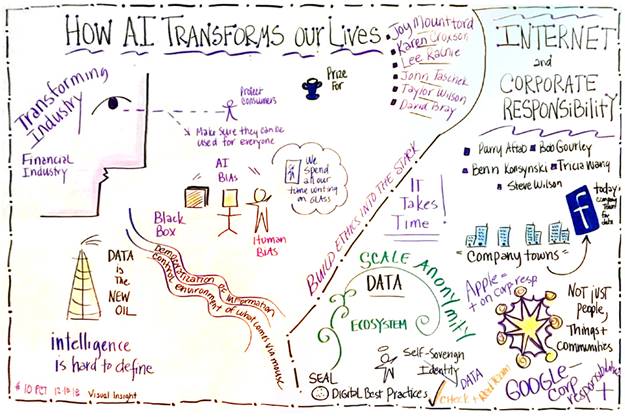 HOW AI TRANSFORMS OUR LIVES
Joy Mountford
Karen Croxson
Lee Rainie
John Taschek
Taylor Wilson
David Bray
INTERNET
and
CORPORATE
RESPONSIBILITY
Parry Aftab
Bob Gourley
Benn Konsynski
Tricia Wang
Steve Wilson
Transforming
Industry
Financial
Industry
Protect
consumers
Prize
For
Make Sure they can be
used for everyone
AI
BIAS
We
Spend
all our
time writing
on GLASS
Black
Box
Human
Bots
DATA
is
The
NEW
OIL
Democratization of Information
control environment of what comes via mouse
intelligence
is hard to define
#10 PCT 12·10·18 Visual Insight
BUILD ETHICS INTO THE STACK
IT
Takes
Time!
SCALE ANONYMITY
DATA
ECOSYSTEM
Self-Sovereign
Identity
SEAL
Digital Best Practices
DATA
check +
"Company towns"
f
today
company
town
for
data
Apple =
+ on corp resp
NOT just
People,
Things +
communities
GOOGLE-
Corp
responsibilities
+